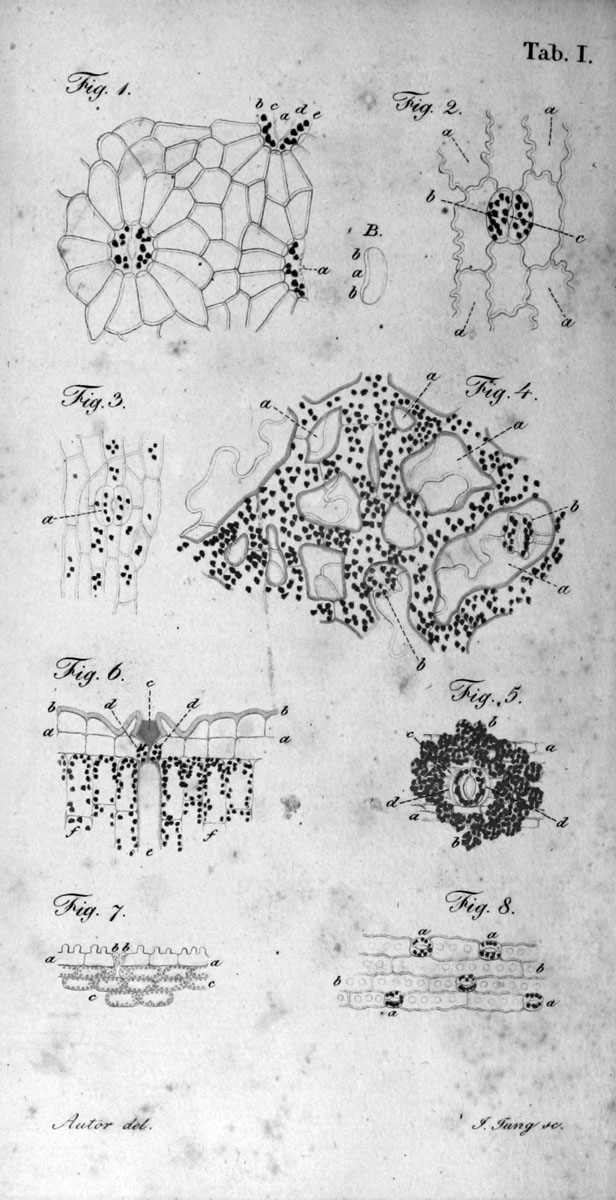 Tab. I.
Fig. 1.
b c a d e
a
B.
b
a
b
Fig. 2.
a
a
b
c
a
a
Fig. 3.
a
Fig. 4.
a
a
a
b
a
b
Fig. 6.
c
d
d
b
b
a
a
f
f
e
Fig. 5.
b
c
a
d
d
a
b
Fig. 7.
b b
a
a
c
c
Fig. 8.
a
a
b
b
a
a
Autor del.
J. Jung sc.